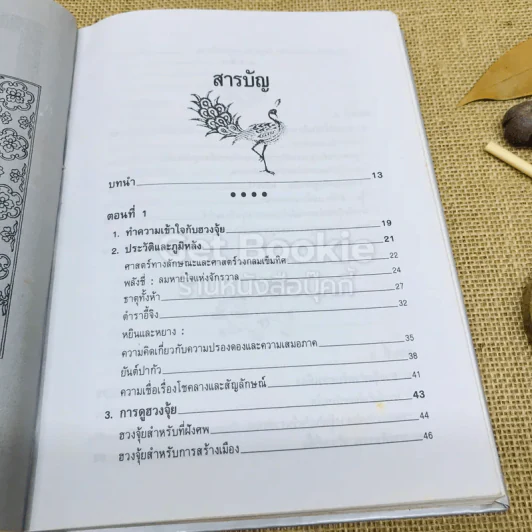 สารบัญ
บทนำ 13
ตอนที่ 1
1. ทำความเข้าใจกับฮวงจุ้ย 19
2. ประวัติและภูมิหลัง 21
ศาสตร์ทางลักษณะและศาสตร์วงกลมเข็มทิศ 22
พลังชี่ : ลมหายใจแห่งจักรวาล 24
ธาตุทั้งห้า 27
ตำราอี้จิง 32
หยินและหยาง :
ความคิดเกี่ยวกับความปรองดองและความเสมอภาค 35
ยันต์ปากัว 38
ความเชื่อเรื่องโชคลางและสัญลักษณ์ 41
3. การดูฮวงจุ้ย 43
ฮวงจุ้ยสำหรับที่ฝังศพ 44
ฮวงจุ้ยสำหรับการสร้างเมือง 46
Bookie
ร้านหนังสือบุ๊คกี้